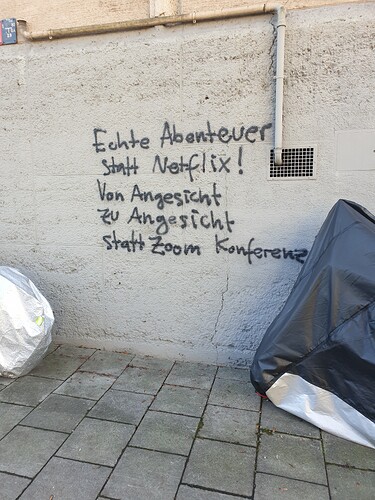 Echte Abenteuer
statt Netflix!
Von Angesicht
zu Angesicht
statt Zoom Konferenz